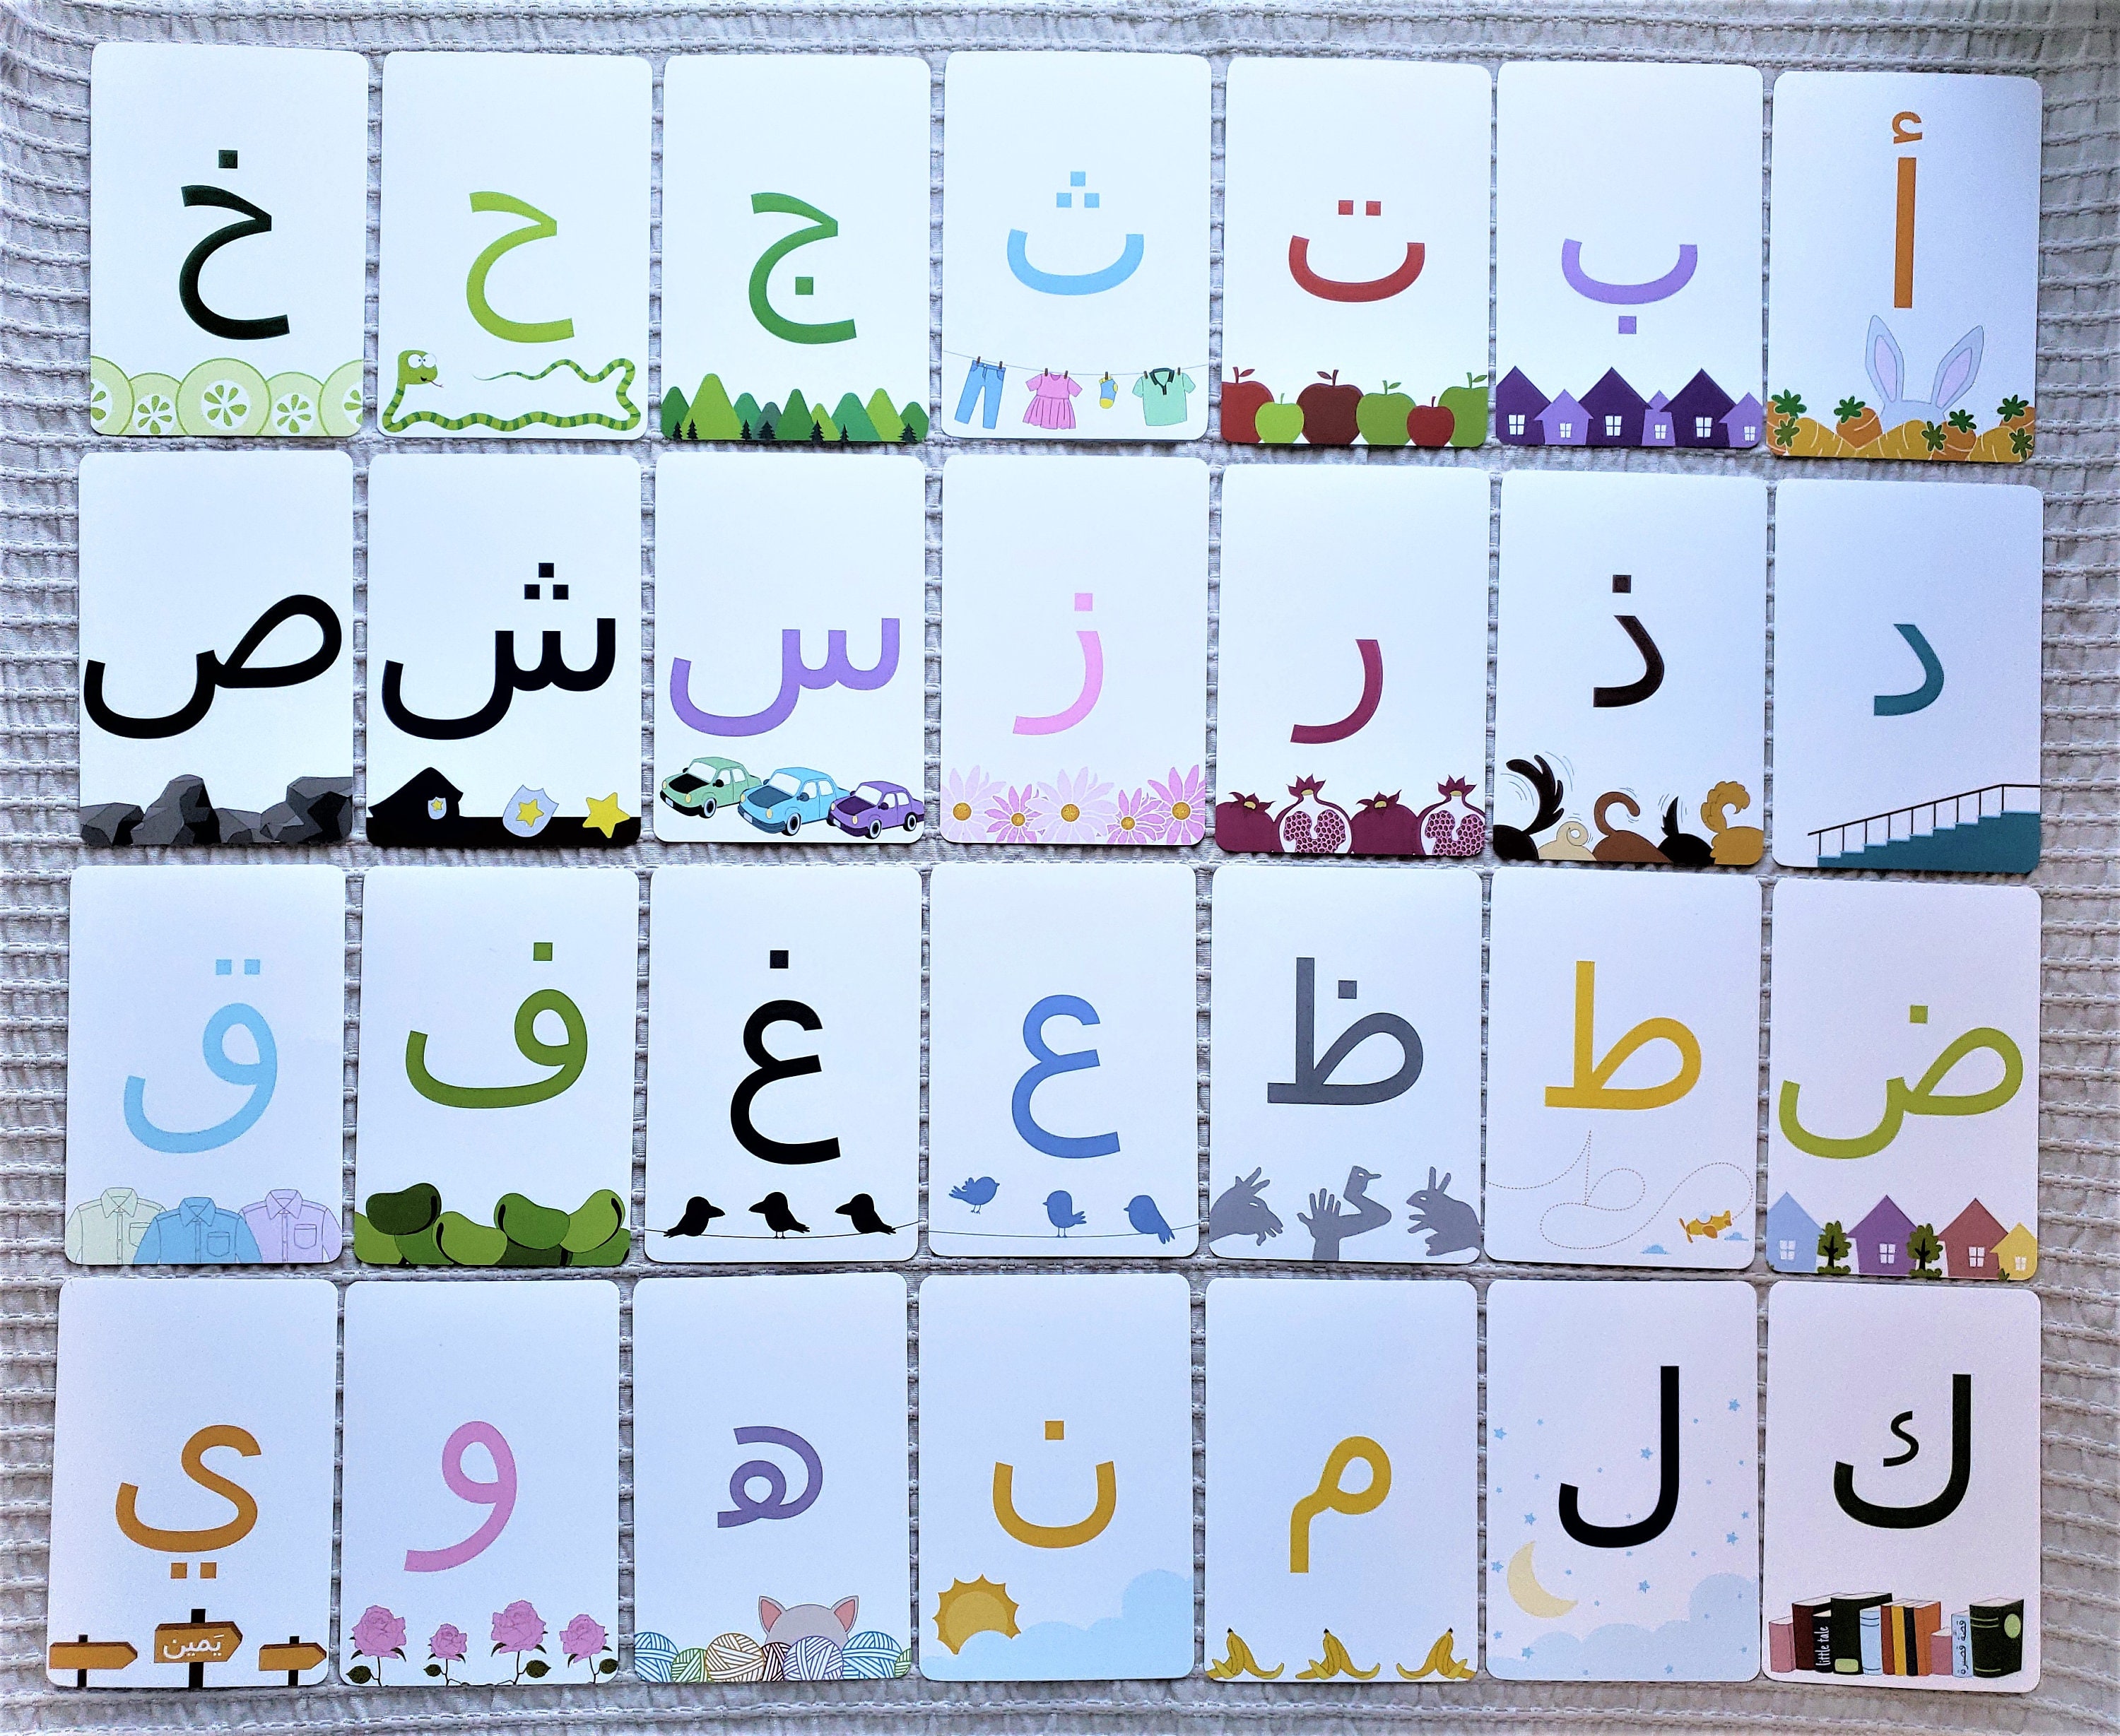 أ ب ت ث ج ح خ
د ذ ر ز س ش ص
ض ط ظ ع غ ف ق
ك ل م ن ه و ي
little tale
قصة قصيرة
يَمين